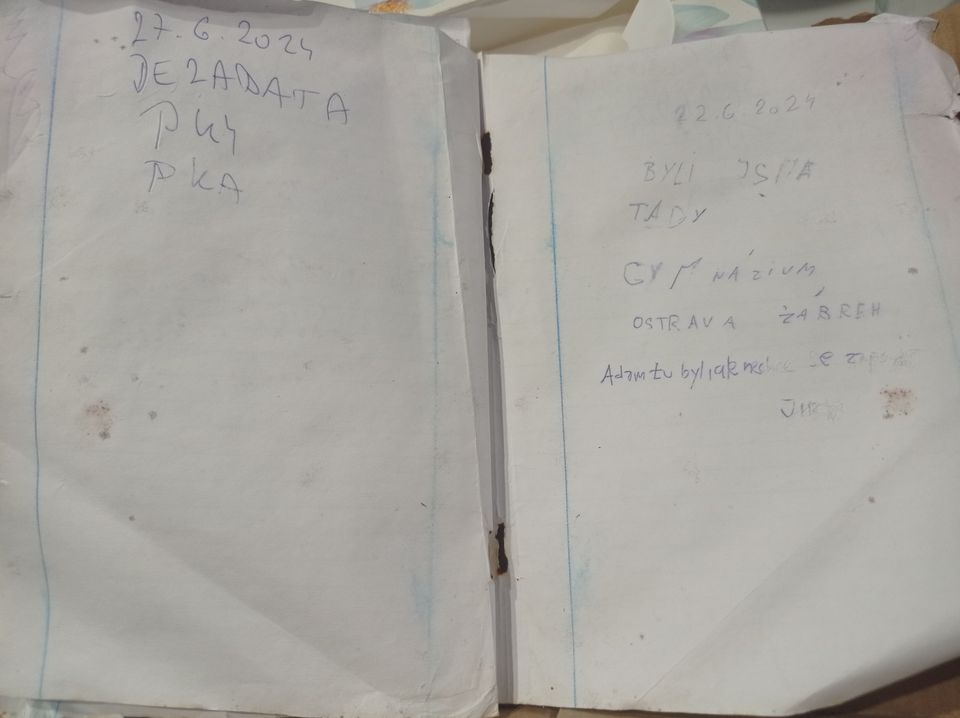 27.6.2024
DEZADATA
PKY
PKA
22.6.2024
BYLI JSMA
TADY
GYMNÁZIUM
OSTRAVA ZÁBREH
Adam tu byl, ale se